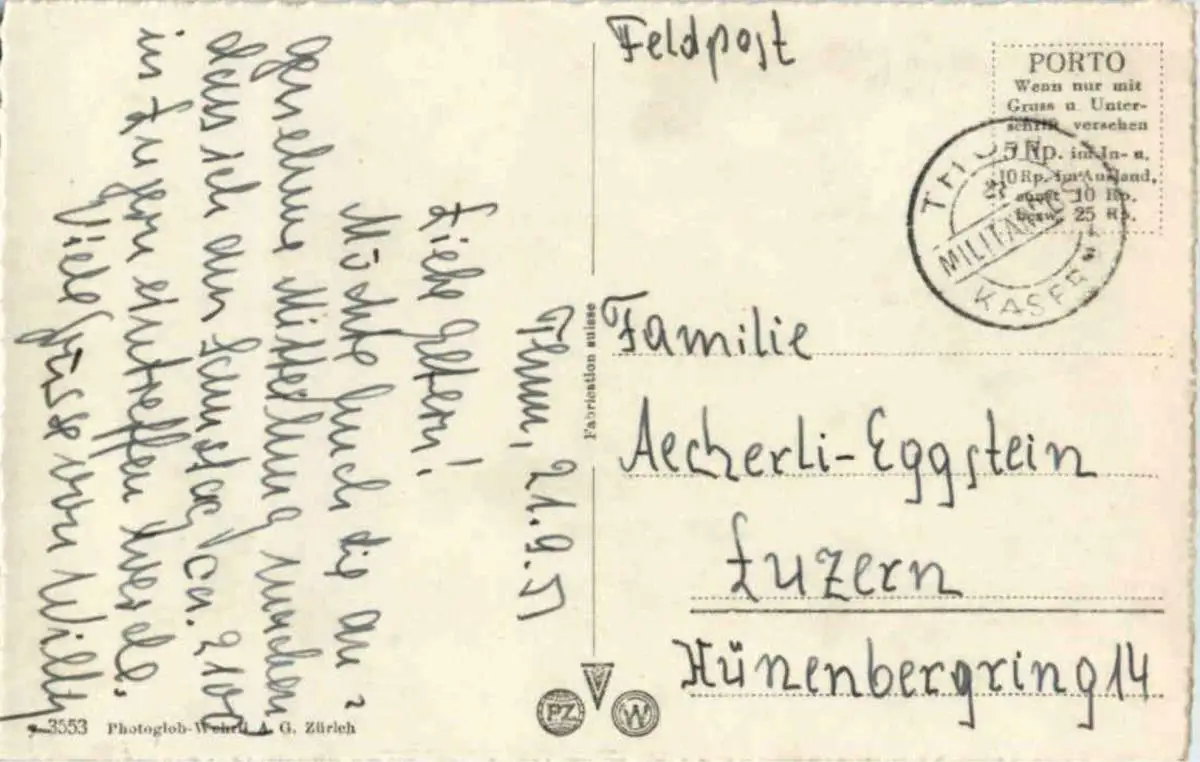 Feldpost
PORTO
Wenn nur mit
Gruss u. Unter-
schrift versehen
5 Rp. im In- u.
10 Rp. im Ausland,
sonst 10 Rp.
bezw. 25 Rp.
THUN
KASER
Familie
Aecherli-Eggstein
Luzern
Hünenbergring 14
Fabrication suisse
Thun, 21.9.51
Liebe Eltern!
Möchte Euch die an=
genehme Mitteilung machen
dass ich am Samstag ca. 2100
in Luzern eintreffen werde.
Viele Grüsse von Willy
3553 Photoglob-Wehrli A. G. Zürich
PZ
W